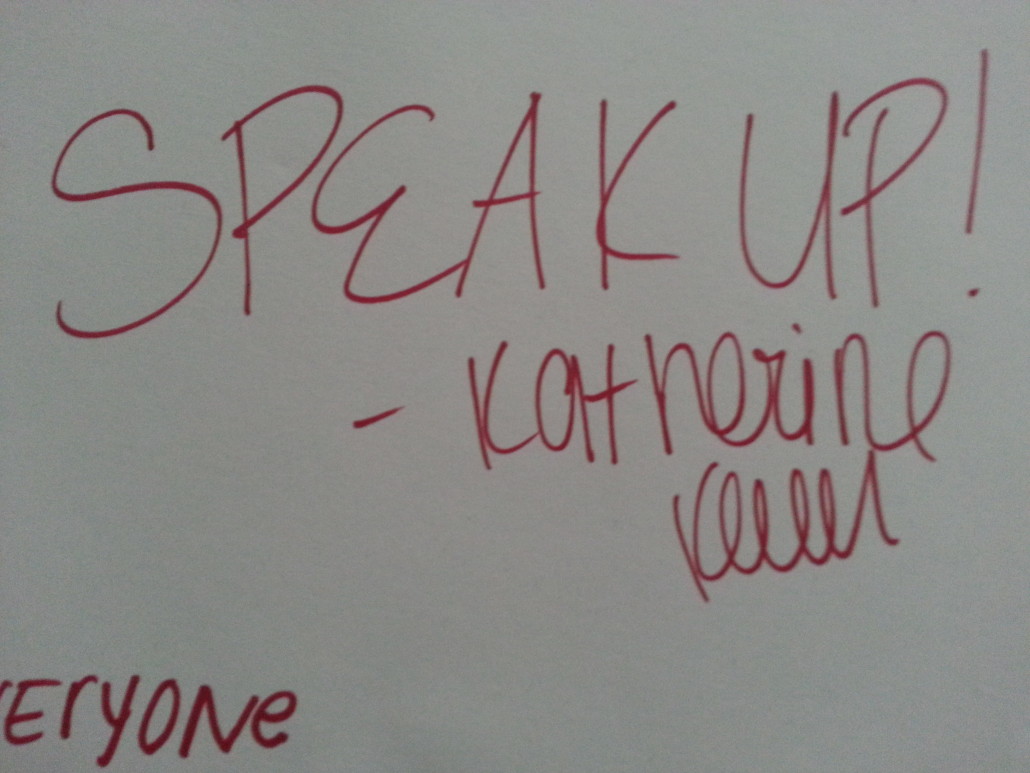 SPEAK UP!
- Katherine
ERYONe